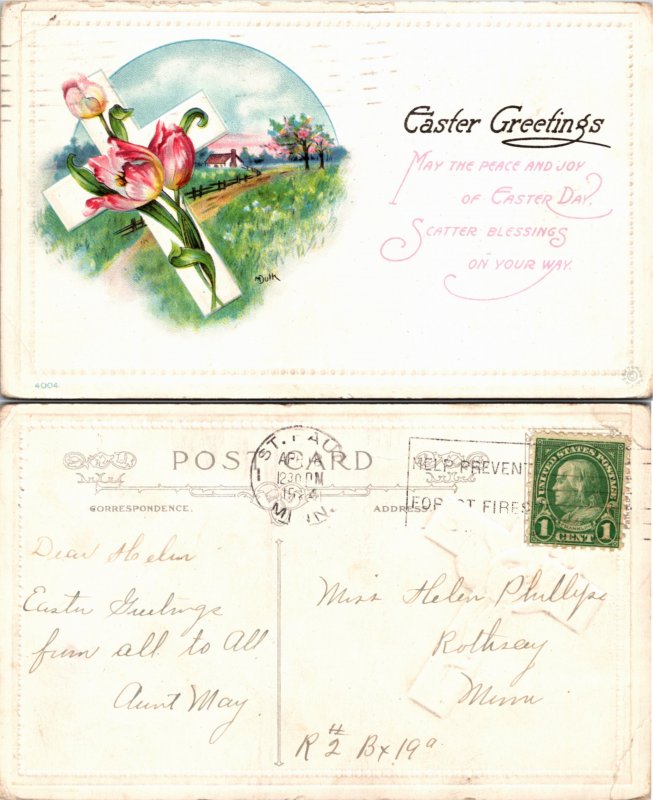 Easter Greetings
May the peace and joy
of Easter Day,
Scatter blessings
on your way.
4004
POST CARD
CORRESPONDENCE.
ADDRESS
ST. PAUL
APR
12 30 PM
MINN.
HELP PREVENT
FOREST FIRES
UNITED STATES POSTAGE
FRANKLIN
1 1
CENT
Dear Helen
Easter Greetings
from all to All
Aunt May
Miss Helen Phillips
Rothsay
Minn
R # 2 Bx 19a